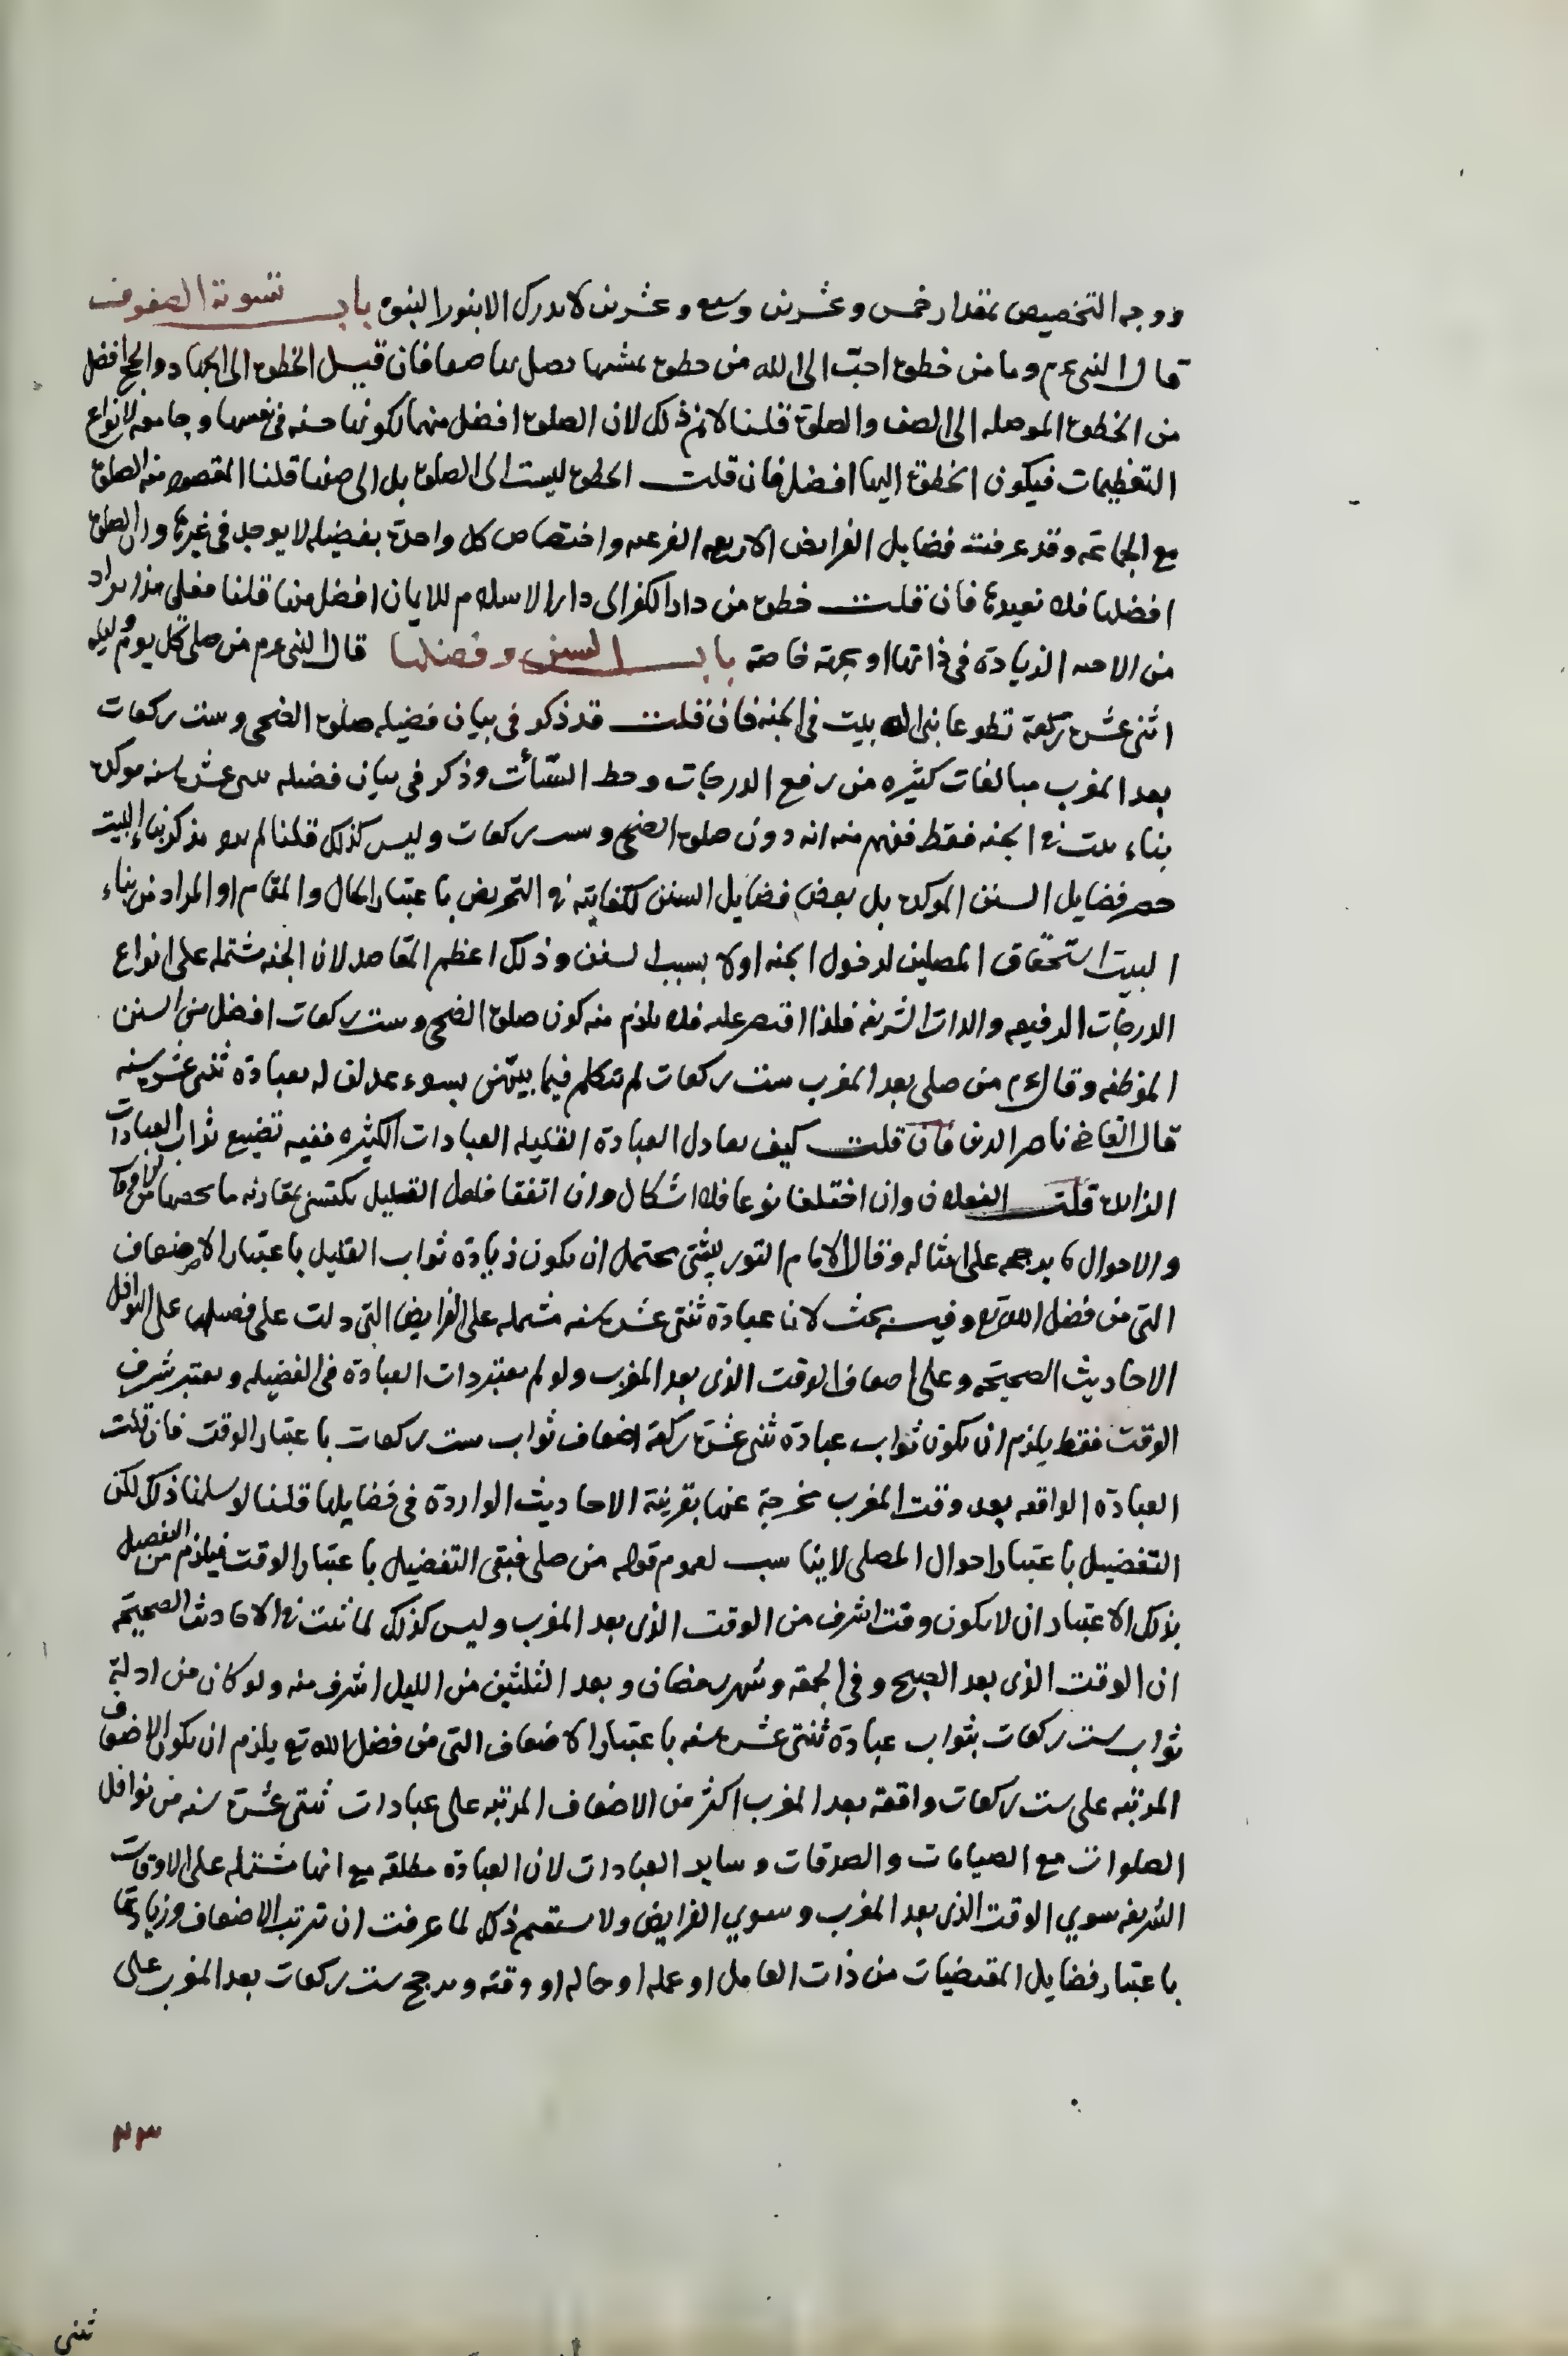 ووجه التخصيص بمقدار خمس وعشرين وسبع وعشرين لا يدرك الا بنور النبوة باب تسوية الصفوف
قال النبي عم وما من خطوة احبّ الى الله من خطوة يمشيها يصل بها صفا فان قيل الخطوة الى الجهاد والحج افضل
من الخطوة الموصله الى الصف والصلوة قلنا لانم ذلك لان الصلوة افضل منهما لكونها حسنه في نفسها وجامعه لانواع
التعظيمات فيكون الخطوة اليها افضل فان قلت الخطوة ليست الى الصلوة بل الى صفها قلنا المقصود منه الصلوة
مع الجماعة وقد عرفت فضايل الفرايض الاربعه الفرعيه واختصاص كل واحدة بفضيله لا يوجد في غيرها وان الصلوة
افضلها فلا نعيدها فان قلت خطوة من دار الكفر الى دار الاسلام للايمان افضل منها قلنا فعلى هذا يراد
من الاحب الزيادة في ذاتها او بجهة خاصة باب السنن وفضلها قال النبي عم من صلى كل يوم وليله
اثنى عشرة ركعة تطوعا بنى الله بيت في الجنه فان قلت قد ذكر في بيان فضيله صلوة الضحى وست ركعات
بعد المغرب مبالغات كثيره من رفع الدرجات وحط السّيأت وذكر في بيان فضيله ثنتى عشرة سنه موكده
بناء بيت في الجنه فقط ففهم منه انه دون صلوة الضحى وست ركعات وليس كذلك قلنا لم يرد بذكر بناء البيت
حصر فضايل السنن الموكده بل بعض فضايل السنن لكفايته في التحريض باعتبار الحال والمقام او المراد من بناء
البيت استحقاق المصلين لدخول الجنه اولا بسبب السنن وذلك اعظم المقاصد لان الجنه مشتمله على انواع
الدرجات الرفيعه والذات الشريفه فلذا اقتصر عليه فلا يلزم منه كون صلوة الضحى وست ركعات افضل من السنن
الموظفه وقال عم من صلى بعد المغرب ست ركعات لم يتكلم فيما بينهن بسوء عدلن له بعبادة ثنتى عشرة سنه
قال القاضي ناصر الدين فان قلت كيف يعادل العبادة القليله العبادات الكثيره ففيه تضييع ثواب العبادات
الزايده قلت الفعلان وان اختلفا نوعا فلا اشكال وان اتفقا فلعل القليل يكتسى بمقارنه ما يخصها من الاوقات
والاحوال ما يرجحه على امثاله وقال الامام التوربشتي يحتمل ان يكون زيادة ثواب القليل باعتبار الاضعاف
التي من فضل الله تع وفيه بحث لان عبادة ثنتى عشرة سنه مشتمله على الفرايض التي دلت على فضلها على النوافل
الاحاديث الصحيحه وعلى اضعاف الوقت الذى بعد المغرب ولو لم يعتبر ذات العبادة في الفضيله ويعتبر شرف
الوقت فقط يلزم ان يكون ثواب عبادة ثنتى عشرة ركعة اضعاف ثواب ست ركعات باعتبار الوقت فان قلت
العبادة الواقعه بعد وقت المغرب مخرجة عنها بقرينة الاحاديث الواردة في فضايلها قلنا لو سلمنا ذلك لكن
التفضيل باعتبار احوال المصلي لا يناسب لعموم قوله من صلى فبقى التفضيل باعتبار الوقت فيلزم من التفضيل
بذلك الاعتبار ان لا يكون وقت اشرف من الوقت الذى بعد المغرب وليس كذلك لما ثبت في الاحاديث الصحيحة
ان الوقت الذى بعد الصبح وفي الجمعه وشهر رمضان وبعد الثلثين من الليل اشرف منه ولو كان من ادلة
ثواب ست ركعات بثواب عبادة ثنتى عشرة سنه باعتبار الاضعاف التي من فضل الله تع يلزم ان يكون الاضعاف
المرتبه على ست ركعات واقعه بعد المغرب اكثر من الاضعاف المرتبه على عبادات ثنتى عشرة سنه من نوافل
الصلوات مع الصيامات والصدقات وساير العبادات لان العبادة مطلقه مع انها مشتمله على الاوقات
الشريفه سوى الوقت الذى بعد المغرب وسوى الفرايض ولا يستقيم ذلك لما عرفت ان ترتب الاضعاف وزيادتها
باعتبار فضايل المقتضيات من ذات العامل او عمله او حاله او وقته ويرجح ست ركعات بعد المغرب على
٣٣
ثنتى